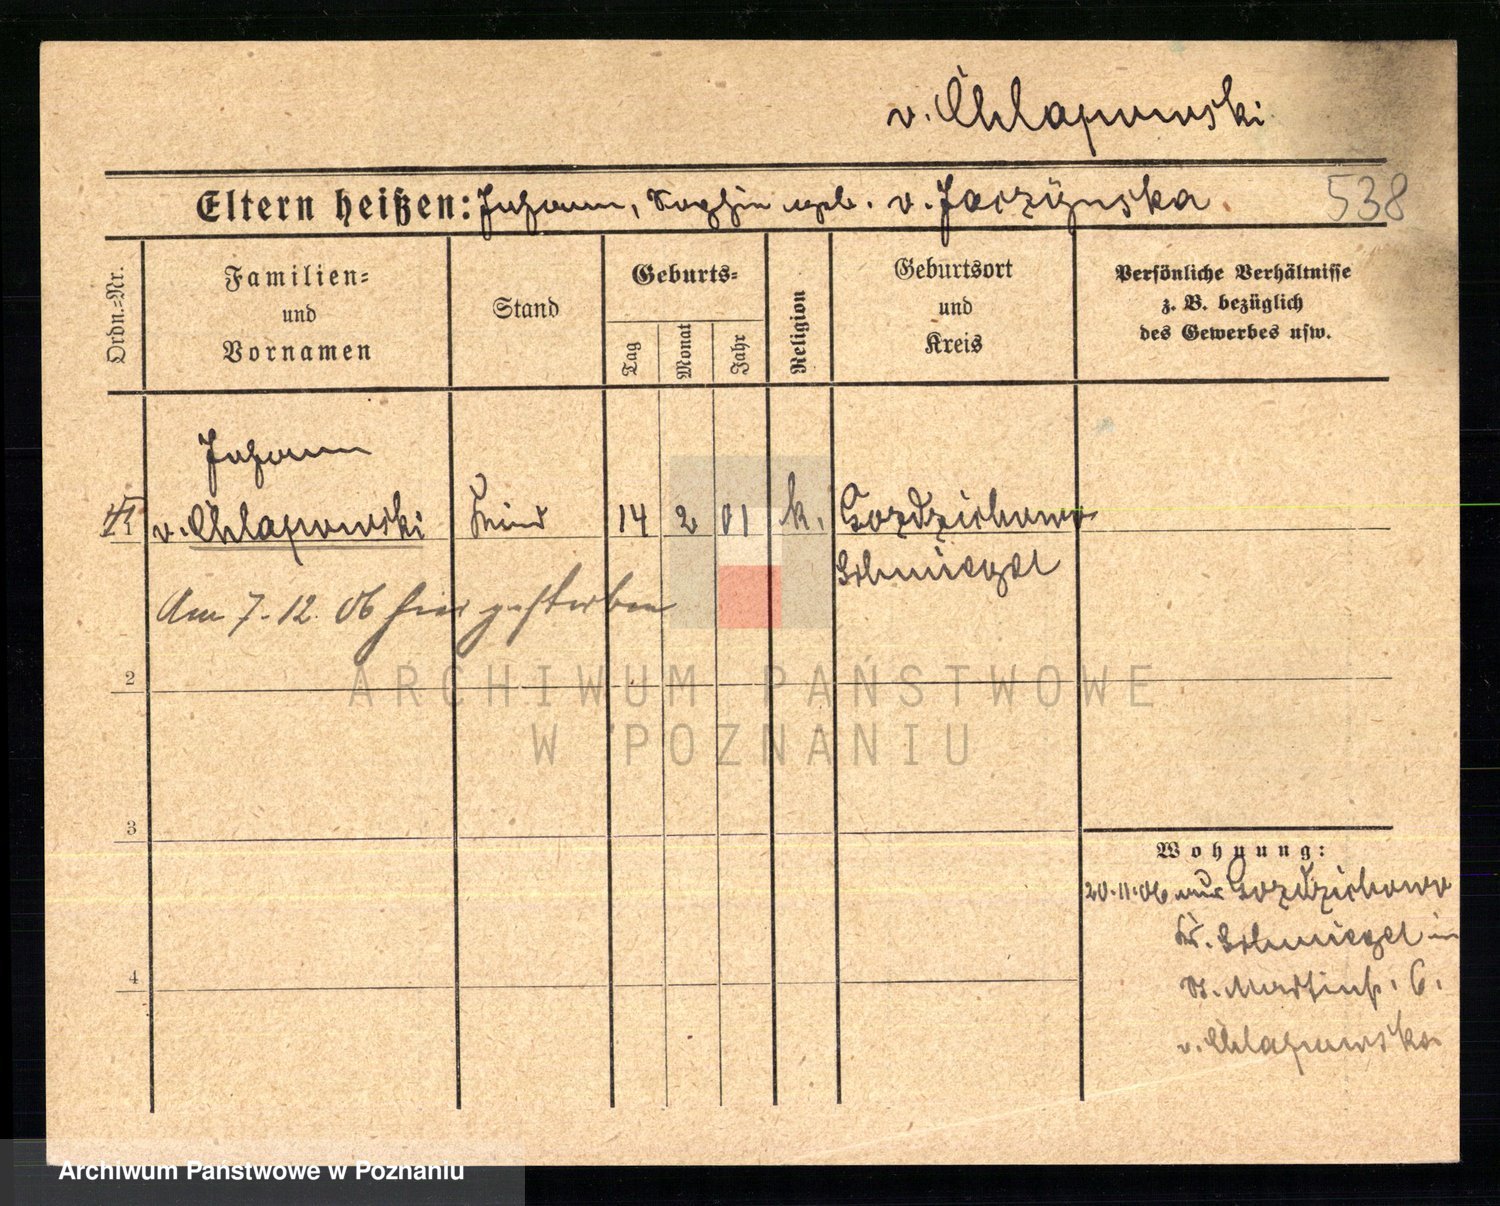 v. Chlapowski
Eltern heißen: Johann, Sophie geb. v. Jarzÿnska
538
Ordn.-Nr.
Familien-
und
Vornamen
Stand
Geburts-
Tag
Monat
Jahr
Religion
Geburtsort
und
Kreis
Persönliche Verhältnisse
z. B. bezüglich
des Gewerbes usw.
Johann
1 v. Chlapowski Kind 14 2 01 k. Gozdzichowo
Schmiegel
Am 7.12.06 hier gestorben
2
3
4
Wohnung:
20.11.06 aus Gozdzichowo
Kr. Schmiegel in
St. Martinstr. 6.
v. Chlapowska
ARCHIWUM PAŃSTWOWE
W POZNANIU
Archiwum Państwowe w Poznaniu